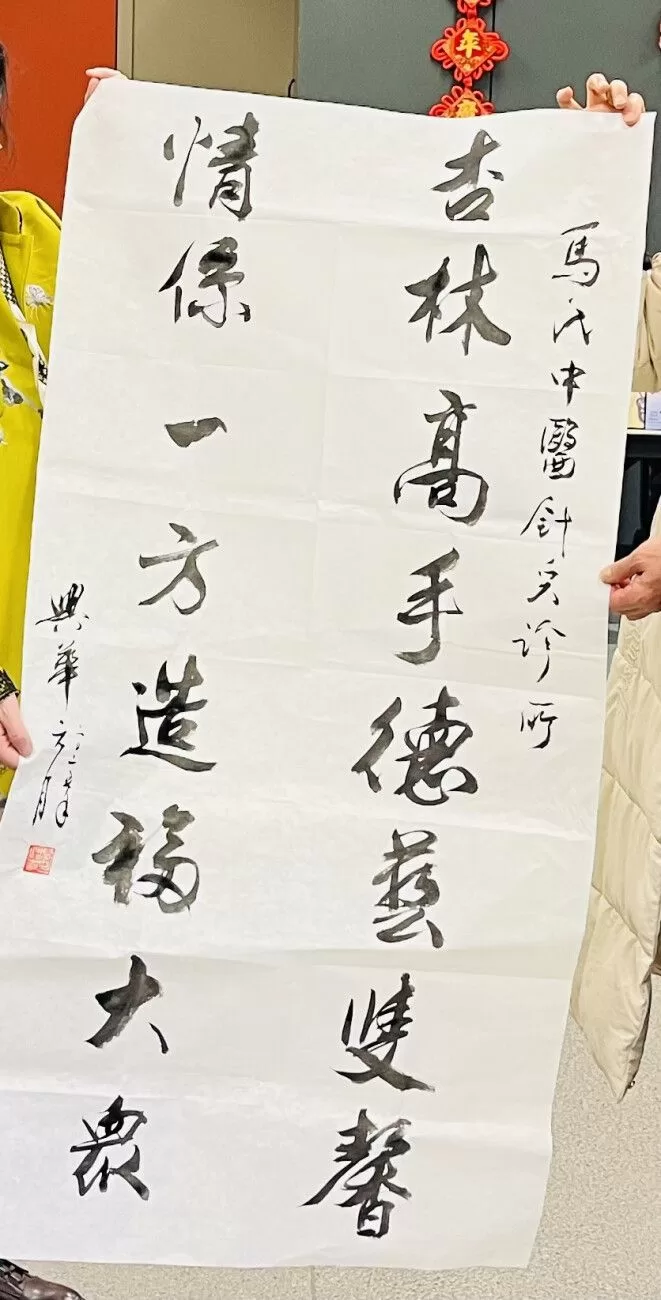 馬氏中醫針灸診所
杏林高手德藝雙馨
情係一方造福大衆
興華
元月
年